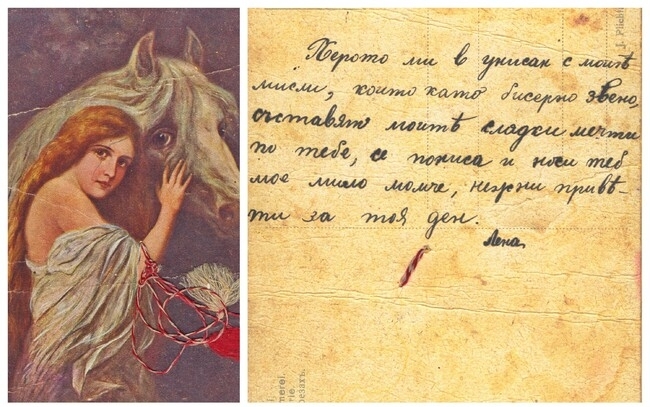 Перото ми в унисан с моитѣ
мисли, които като бисерно звено,
съставят моитѣ сладки мечти
по тебе, се пониса и носи теб
мое мило момче, нежни привѣ
ти за тоя ден.
Лена